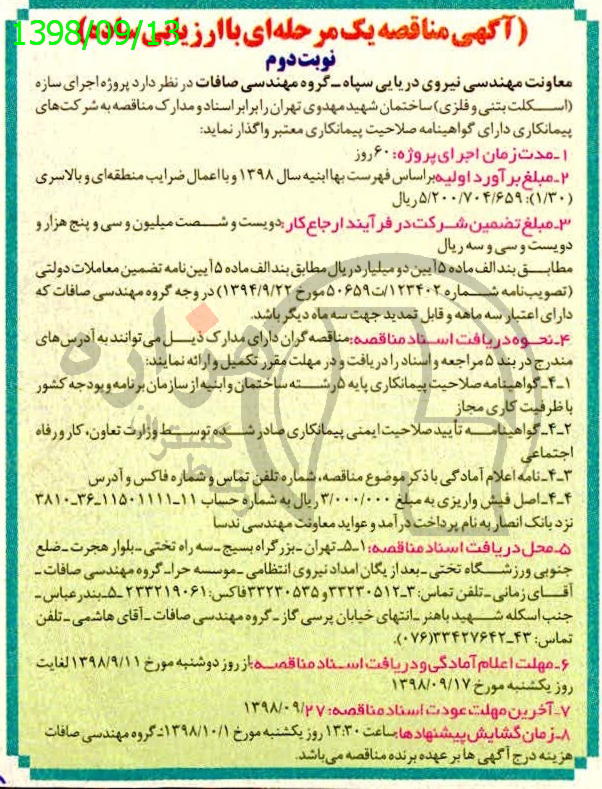 1398/09/13
(آگهی مناقصه یک مرحله‌ای با ارزیابی ساده)
نوبت دوم
معاونت مهندسی نیروی دریایی سپاه ـ گروه مهندسی صافات در نظر دارد پروژه اجرای سازه
(اسکلت بتنی و فلزی) ساختمان شهید مهدوی تهران را برابر اسناد و مدارک مناقصه به شرکت‌های
پیمانکاری دارای گواهینامه صلاحیت پیمانکاری معتبر واگذار نماید:
۱ـ مدت زمان اجرای پروژه: ۶۰ روز
۲ـ مبلغ برآورد اولیه: براساس فهرست بها ابنیه سال ۱۳۹۸ و با اعمال ضرایب منطقه‌ای و بالاسری
(۱/۳۰): ۵/۲۰۰/۷۰۴/۶۵۹ ریال
۳ـ مبلغ تضمین شرکت در فرآیند ارجاع کار: دویست و شصت میلیون و سی و پنج هزار و
دویست و سی و سه ریال
مطابق بند الف ماده ۵ آیین دو میلیارد ریال مطابق بند الف ماده ۵ آیین نامه تضمین معاملات دولتی
(تصویب‌نامه شماره ۱۲۳۴۰۲/ت۵۰۶۵۹ مورخ ۱۳۹۴/۹/۲۲) در وجه گروه مهندسی صافات که
دارای اعتبار سه ماهه و قابل تمدید جهت سه ماه دیگر باشد.
۴ـ نحوه دریافت اسناد مناقصه: مناقصه گران دارای مدارک ذیل می‌توانند به آدرس‌های
مندرج در بند ۵ مراجعه و اسناد را دریافت و در مهلت مقرر تکمیل و ارائه نمایند:
۱ـ۴ـ گواهینامه صلاحیت پیمانکاری پایه ۵ رشته ساختمان و ابنیه از سازمان برنامه و بودجه کشور
با ظرفیت کاری مجاز
۲ـ۴ـ گواهینامه تأیید صلاحیت ایمنی پیمانکاری صادر شده توسط وزارت تعاون، کار و رفاه
اجتماعی
۳ـ۴ـ نامه اعلام آمادگی با ذکر موضوع مناقصه، شماره تلفن تماس و شماره فاکس و آدرس
۴ـ۴ـ اصل فیش واریزی به مبلغ ۳/۰۰۰/۰۰۰ ریال به شماره حساب ۱۱ـ۱۱۵۰۱۱۱۱ـ۳۶ـ۳۸۱۰
نزد بانک انصار به نام پرداخت درآمد و عواید معاونت مهندسی ندسا
۵ـ محل دریافت اسناد مناقصه: ۱ـ۵ـ تهران ـ بزرگراه بسیج ـ سه راه تختی ـ بلوار هجرت ـ ضلع
جنوبی ورزشگاه تختی ـ بعد از یگان امداد نیروی انتظامی ـ موسسه حرا ـ گروه مهندسی صافات ـ
آقای زمانی ـ تلفن تماس: ۳ـ۳۳۲۳۰۵۱۲ و ۳۳۲۳۰۵۳۵ فاکس: ۲۳۳۲۱۹۰۶۱ ـ۵ـ بندرعباس ـ
جنب اسکله شهید باهنر ـ انتهای خیابان پرسی گاز ـ گروه مهندسی صافات ـ آقای هاشمی ـ تلفن
تماس: ۴۳ـ۳۳۴۲۷۶۴۲(۰۷۶).
۶ـ مهلت اعلام آمادگی و دریافت اسناد مناقصه: از روز دوشنبه مورخ ۱۳۹۸/۹/۱۱ لغایت
روز یکشنبه مورخ ۱۳۹۸/۰۹/۱۷
۷ـ آخرین مهلت عودت اسناد مناقصه: ۱۳۹۸/۰۹/۲۷
۸ـ زمان گشایش پیشنهادها: ساعت ۱۳:۳۰ روز یکشنبه مورخ ۱۳۹۸/۱۰/۱ گروه مهندسی صافات
هزینه درج آگهی ها بر عهده برنده مناقصه می‌باشد.
هزاره